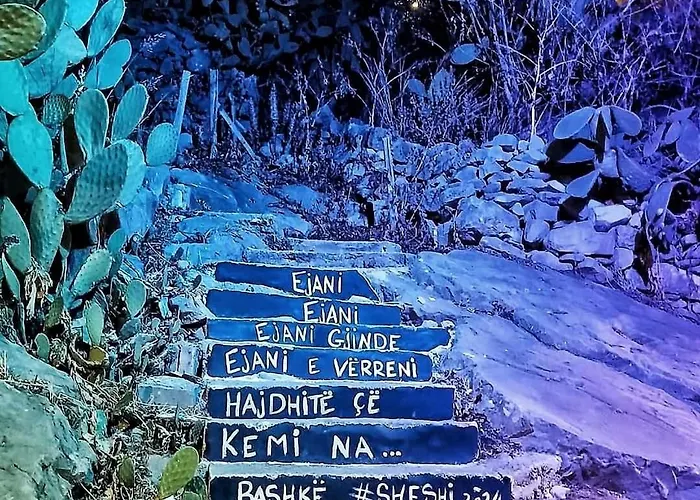 EJANI
EJANI
EJANI GJINDE
EJANI E VËRRENI
HAJDHITË ÇË
KEMI NA...
BASHKË #SHESHI 2024